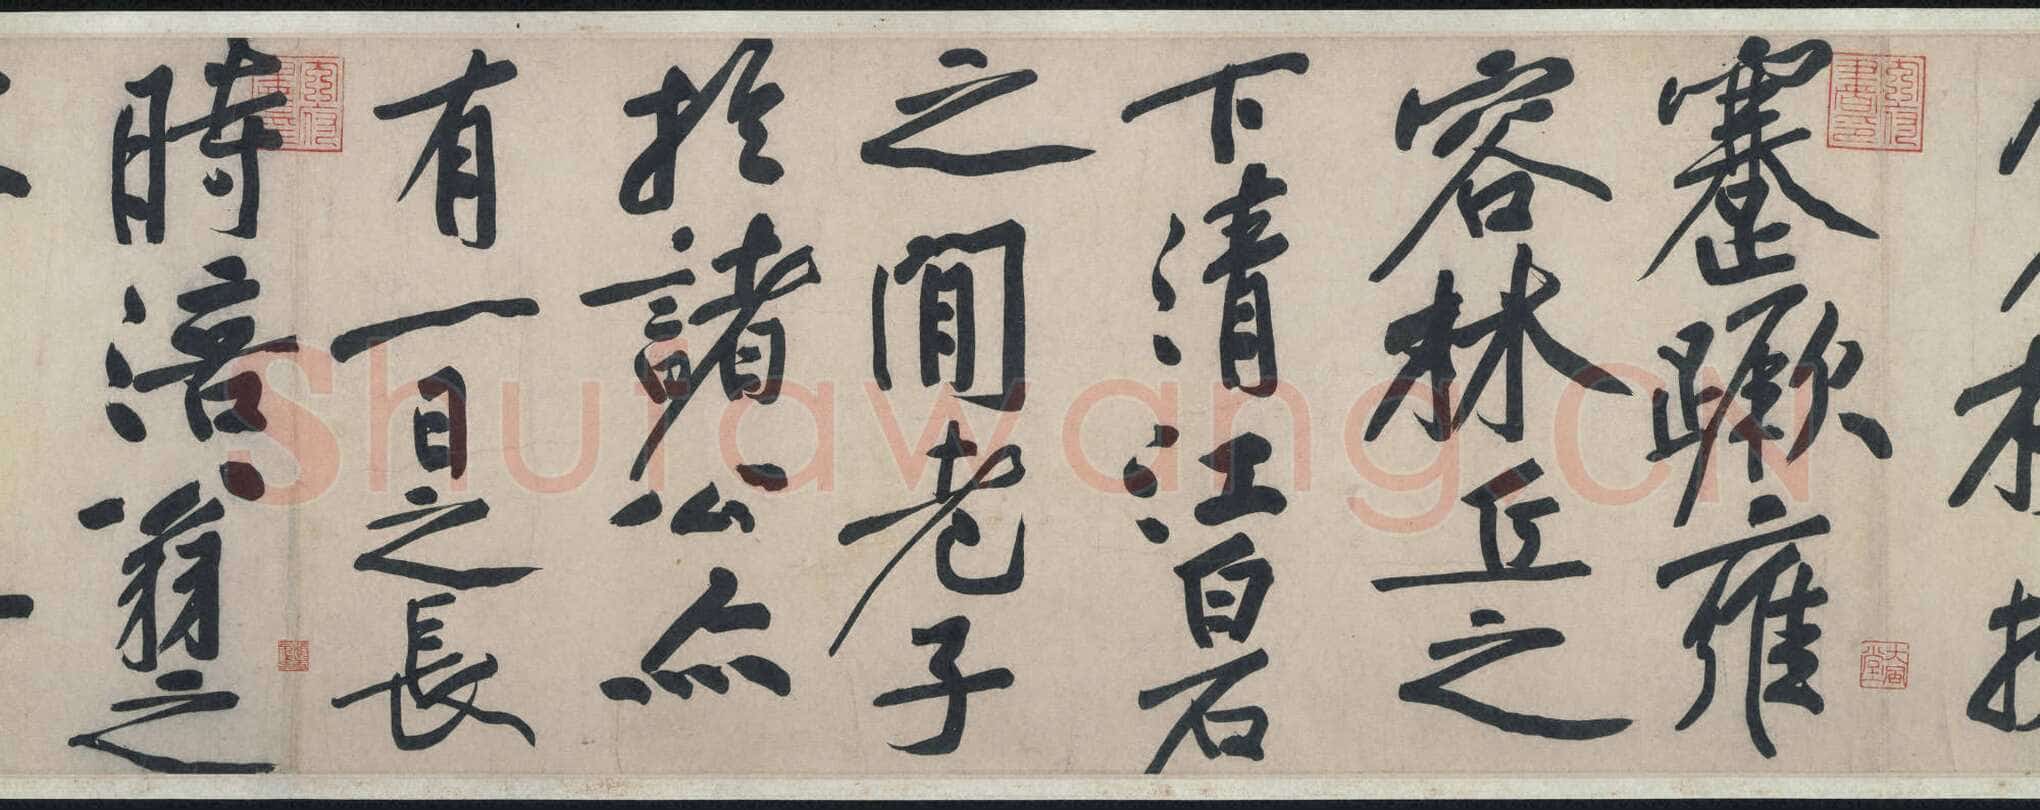 蹇蹶雍
容林丘之
下清江白石
之間老子
於諸公亦
有一日之長
時涪翁之
Shufawang.CN